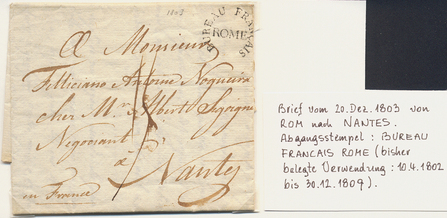 1803
BUREAU FRANCAIS
ROME
A Monsieur
Felliciano Antoine Nogueira
chez Mr. Albert
Negociant
à
Nantes
en France
Brief vom 20. Dez. 1803 von
ROM nach NANTES.
Abgangsstempel : BUREAU
FRANCAIS ROME (bisher
belegte Verwendung : 10.4.1802
bis 30.12.1809).